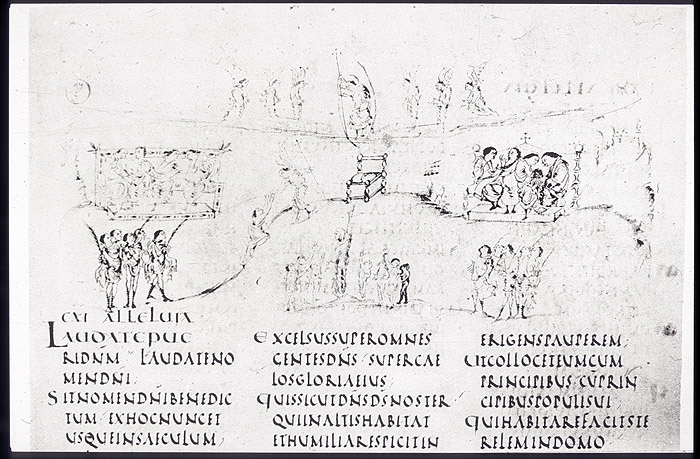 CXI ALLELUIA
LAUDATE PUE
RI DNM LAUDATE NO
MEN DNI
SIT NOMEN DNI BENEDIC
TUM EX HOC NUNC ET
USQUE IN SAECULUM
EXCELSUS SUPER OMNES
GENTES DNS SUPER CAE
LOS GLORIA EIUS
QUIS SICUT DNS DS NOSTER
QUI IN ALTIS HABITAT
ET HUMILIA RESPICIT IN
ERIGENS PAUPEREM
UT COLLOCET EUM CUM
PRINCIPIBUS CŪ PRIN
CIPIBUS POPULI SUI
QUI HABITARE FACIT STE
RELEM IN DOMO